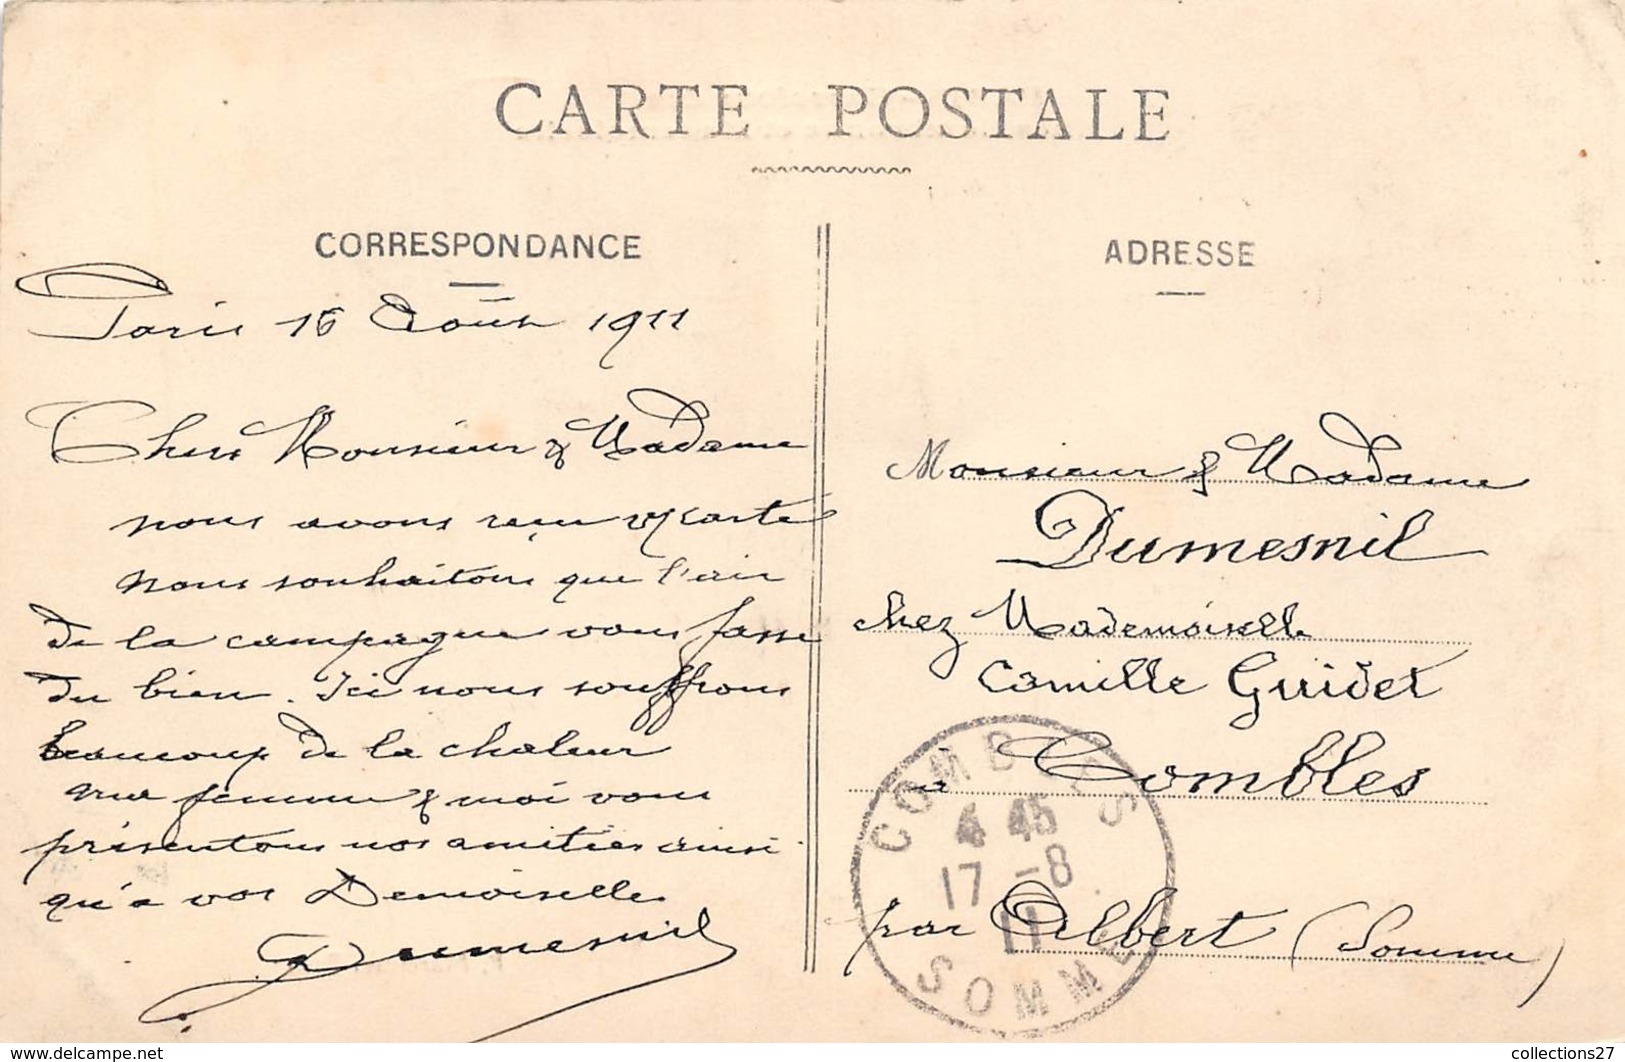 CARTE POSTALE
CORRESPONDANCE
Paris 16 Août 1911
Chers Monsieur & Madame
nous avons reçu v/carte
nous souhaitons que l'air
de la campagne vous fasse
du bien. Ici nous souffrons
beaucoup de la chaleur
ma femme & moi vous
présentons nos amitiés ainsi
qu'à vos Demoiselles
Dumesnil
ADRESSE
Monsieur & Madame
Dumesnil
chez Mademoiselle
Camille Guidet
à Combles
par Albert (Somme)
COMBLES
4 45
17 -8
11
SOMME
www.delcampe.net
collections27